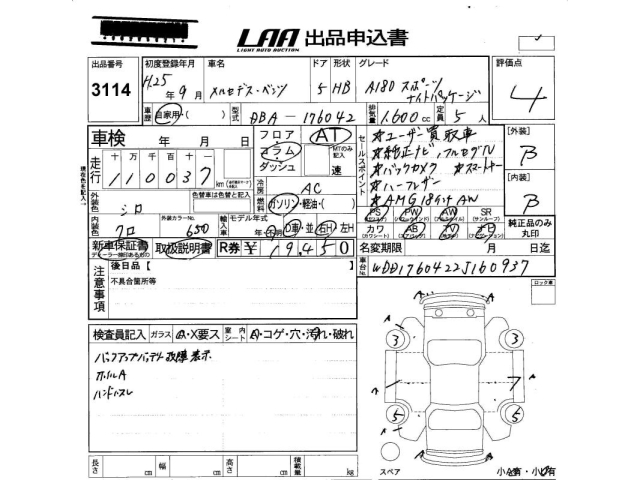 LAA 出品申込書
LIGHT AUTO AUCTION
出品番号 初度登録年月 車名 ドア 形状 グレード 評価点
3114 H.25年 9月 メルセデス・ベンツ 5 HB A180 スポーツ
ナイトパッケージ 4
車歴 自家用・( ) 型式 DBA-176042 排気量 1.600cc 定員 5人
車検 年 月 日 フロア AT
コラム MTのみ記入
ダッシュ 速
走行 十万千百十
110037 km
現在色を記入
セールスポイント
★ユーザー買取車
★純正ナビ,フルセグTV
★バックカメラ ★スマートキー
★ハーフレザー
★AMG18インチAW
[外装] B
[内装] B
冷房 AC
外装色 シロ 色替車は色替と記入 燃料 ガソリン・軽油・( )
内装色 クロ 外装カラーNo. 650 輸入車 モデル年式 D車・並 右H・左H
PS PW AW SR
(パワステ) (パワーウインドウ) (サンルーフ)
カワ AB TV ナビ
純正品のみ丸印
新車保証書 取扱説明書 R券 ¥ 19,450 名変期限 月 日迄
車台No. WDD1760422J160937
注意事項 後日品【 】
不具合箇所等
ロック車
検査員記入 ガラス A・X要ス 室内シート A・コゲ・穴・汚れ・破れ
バックアップバッテリー故障表示
ホイルA
ハンドルスレ
A A
3 3
A 7
5 5
A A
長さ cm 幅 cm 高さ cm 積載量 kg
スペア 小A有・小U有